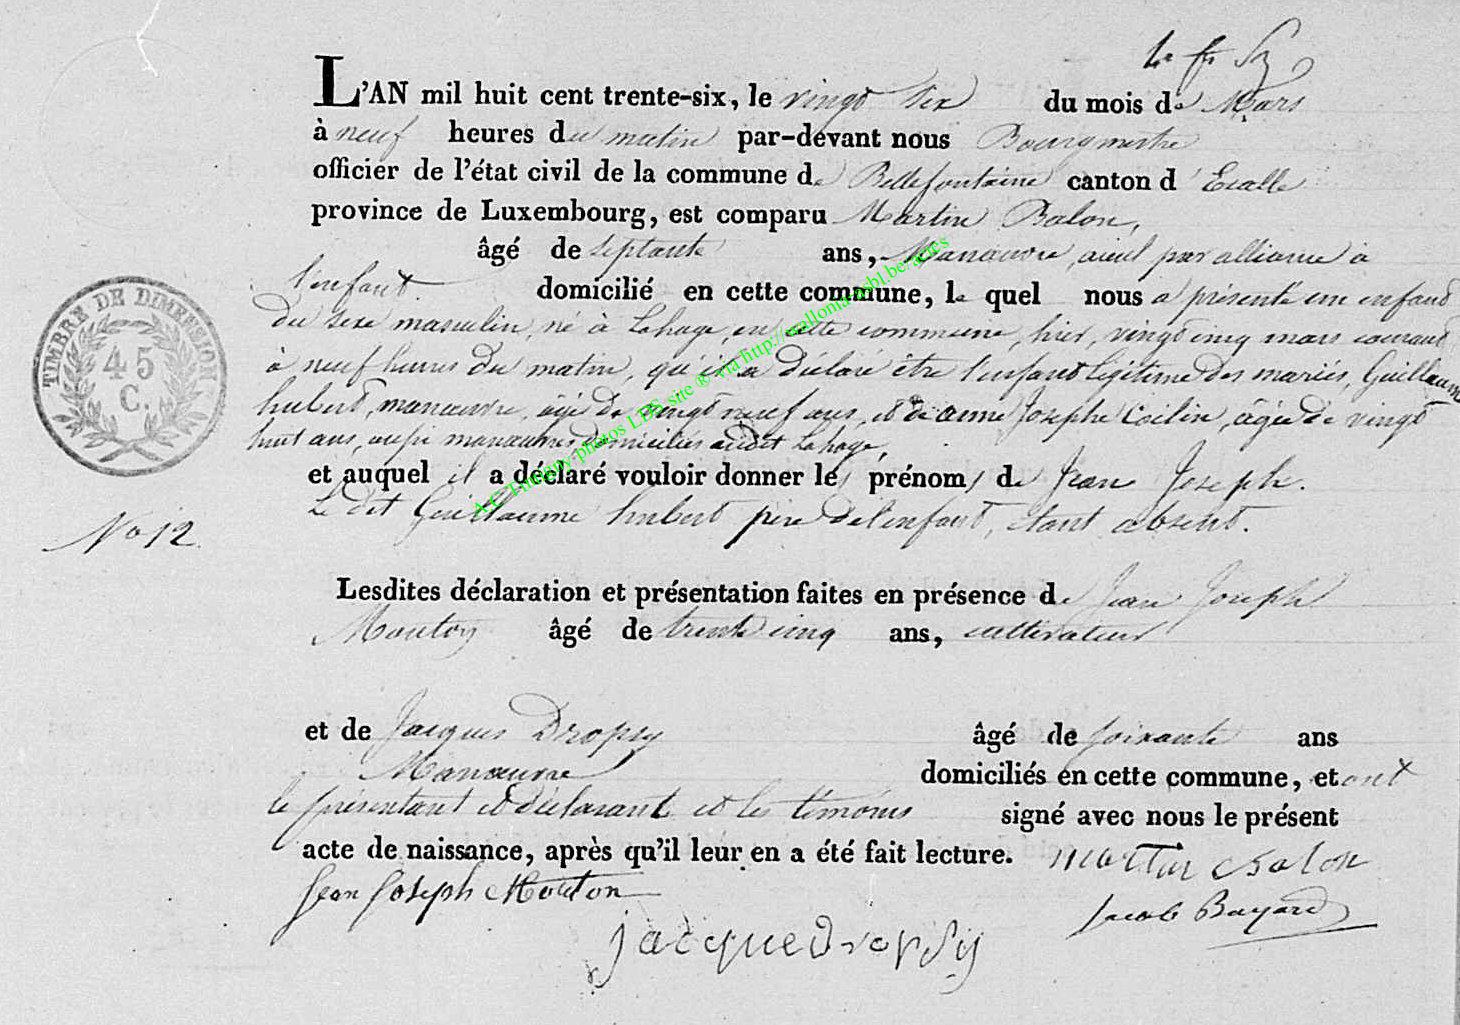 L'AN mil huit cent trente-six, le vingt six du mois de Mars
à neuf heures du matin par-devant nous Bourgmestre
officier de l'état civil de la commune de Bellefontaine canton d'Etalle
province de Luxembourg, est comparu Martin Balon,
âgé de septante ans, Manœuvre, aieul par alliance à
l'enfant domicilié en cette commune, le quel nous a présenté un enfant
du sexe masculin, né à Lahage, en cette commune, hier, vingt cinq mars courant
à neuf heures du matin, qu'il a déclaré être l'enfant légitime des mariés, Guillaume
hubert, manœuvre, âgé de vingt neuf ans, et de anne Joseph Coilin, âgée de vingt
huit ans, aussi manœuvre domiciliés audit Lahage,
et auquel il a déclaré vouloir donner les prénoms de Jean Joseph.
Le dit Guillaume hubert père de l'enfant, étant absent.
TIMBRE DE DIMENSION
45
C.
No 12
Lesdites déclaration et présentation faites en présence de Jean Joseph
Mouton âgé de trente cinq ans, cultivateur
et de Jacques Dropsy âgé de soixante ans
Manœuvre domiciliés en cette commune, et ont
le présentant et déclarant et les témoins signé avec nous le présent
acte de naissance, après qu'il leur en a été fait lecture. Martin Balon
Jean Joseph Mouton Jacob Bayard
jacque Dropsy